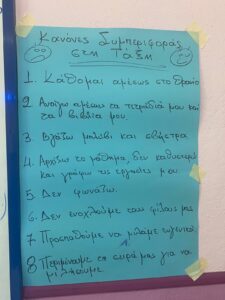 Κανόνες Συμπεριφοράς
στη Τάξη
1. Κάθομαι αμέσως στο θρανίο
2 Ανοίγω αμέσως τα τετράδιά μου και
τα βιβλία μου
3. Βγάζω μολύβι και σβήστρα
4. Αρχίζω το μάθημα, δεν καθυστερώ
και γράφω τις εργασίες μου
5. Δεν φωνάζω.
6. Δεν ενοχλούμε τους φίλους μας
7 Προσπαθούμε να μιλάμε ευγενικά
8 Περιμένουμε τη σειρά μας για να
μιλήσουμε.